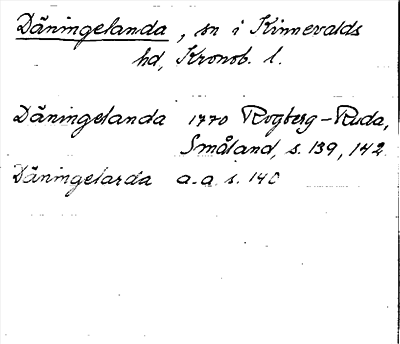 Däningelanda, sn i Kinnevalds
hd, Kronob. l.
Däningelanda 1770 Rogberg-Ruda,
Småland, s. 139, 142
Däningelarda a.a. s. 140